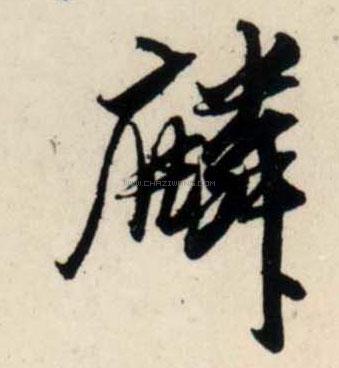 麟
WWW.CHAZIWANG.COM